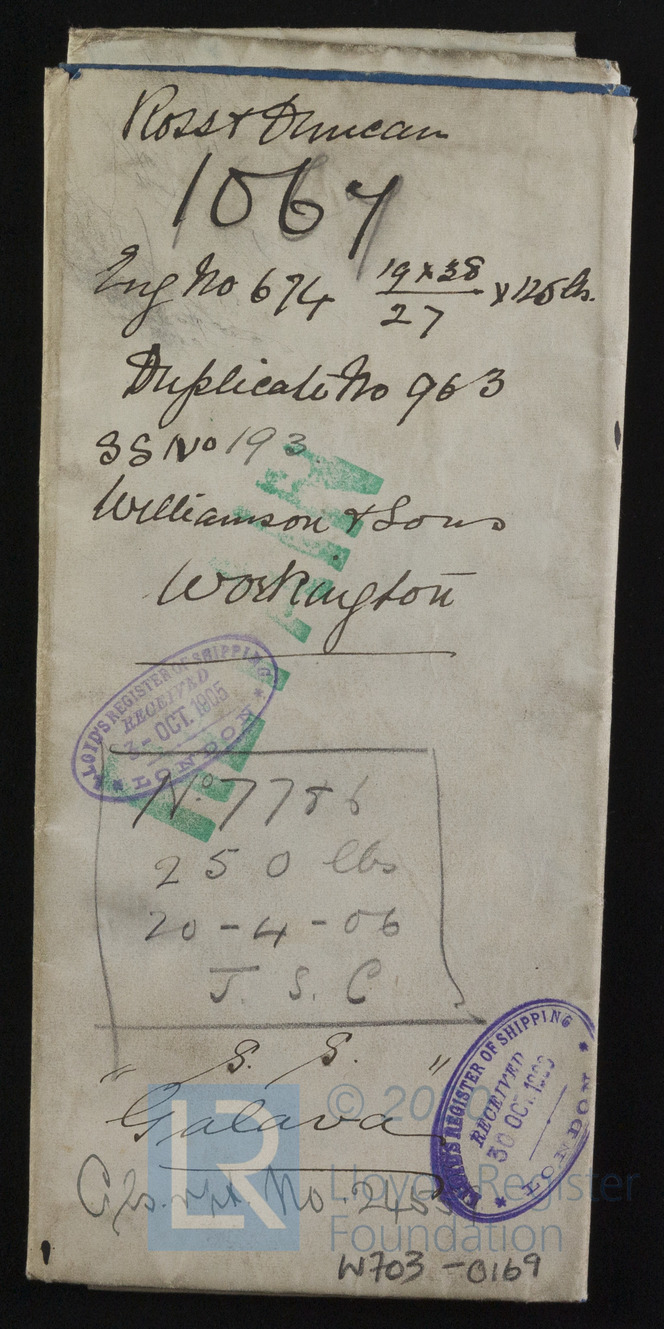 Ross & Duncan
1067
Eng No 674 19 x 38 / 27 x 125 lbs.
Duplicate No 963
SS No 193
Williamson & Sons
Workington
LLOYD'S REGISTER OF SHIPPING
RECEIVED
3- OCT. 1905
LONDON
No 7786
250 lbs
20-4-06
J. S. C.
"S. S. "
Galava
LLOYD'S REGISTER OF SHIPPING
RECEIVED
30 OCT
LONDON
LR
© 20
Lloyd's Register
Foundation
rpt. No. 245
W703-0169